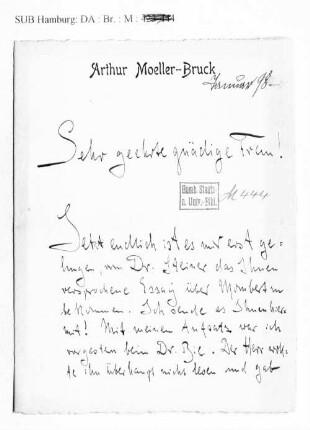 SUB Hamburg: DA : Br. : M :
Arthur Moeller-Bruck
Januar 98.
Sehr geehrte gnädige Frau!
Hamb. Staats
u. Univ.-Bibl.
M 444
Jetzt endlich ist es mir erst ge-
lungen, von Dr. Steiner das Ihnen
versprochene Essay über Mombert zu
bekommen. Ich sende es Ihnen hier-
mit! Mit meinen Aufsatz war ich
vorgestern beim Dr. Bie. Der Herr
te ihn überhaupt nicht lesen und gab